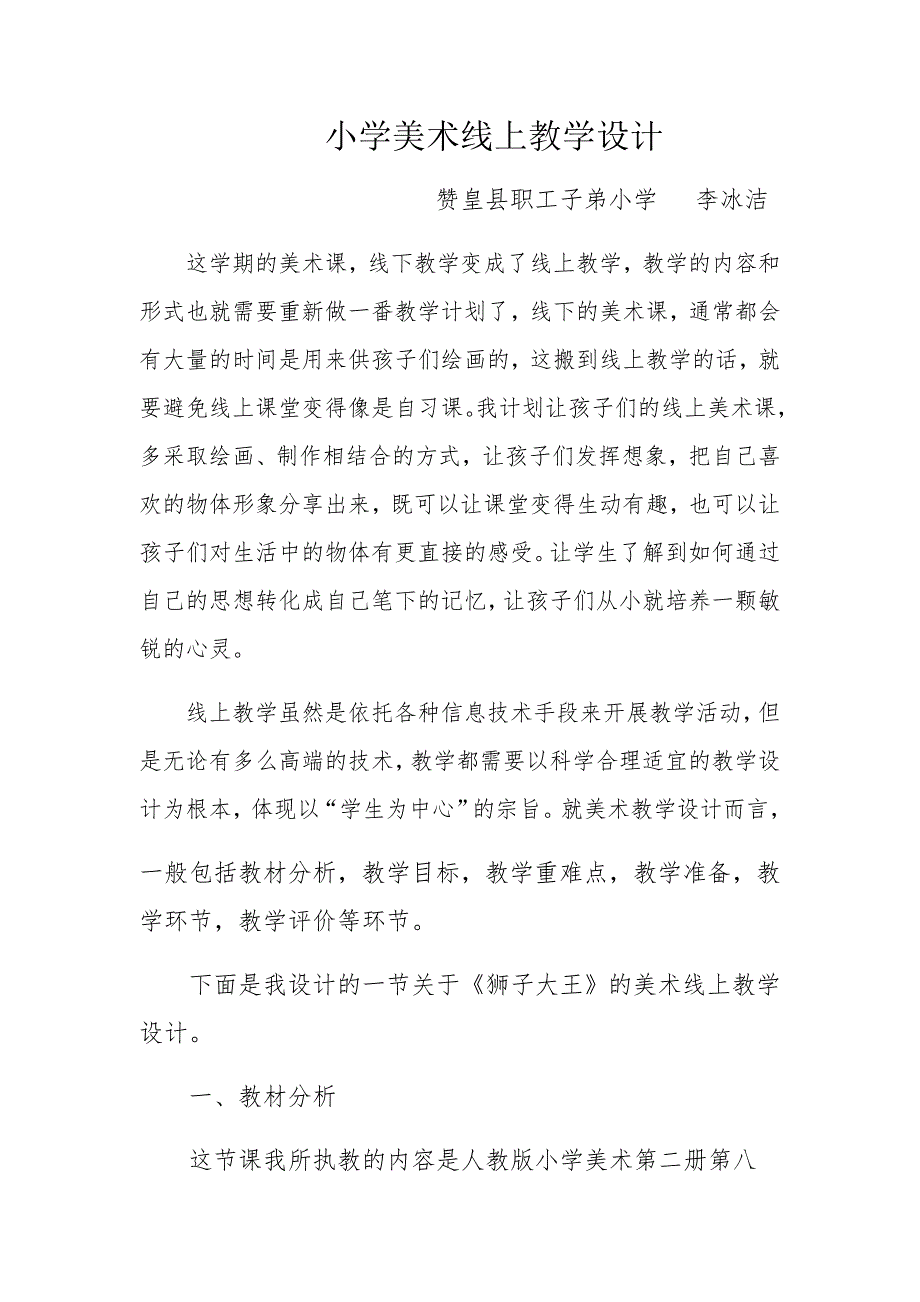 小学美术线上教学设计
赞皇县职工子弟小学 李冰洁
这学期的美术课，线下教学变成了线上教学，教学的内容和
形式也就需要重新做一番教学计划了，线下的美术课，通常都会
有大量的时间是用来供孩子们绘画的，这搬到线上教学的话，就
要避免线上课堂变得像是自习课。我计划让孩子们的线上美术课，
多采取绘画、制作相结合的方式，让孩子们发挥想象，把自己喜
欢的物体形象分享出来，既可以让课堂变得生动有趣，也可以让
孩子们对生活中的物体有更直接的感受。让学生了解到如何通过
自己的思想转化成自己笔下的记忆，让孩子们从小就培养一颗敏
锐的心灵。
线上教学虽然是依托各种信息技术手段来开展教学活动，但
是无论有多么高端的技术，教学都需要以科学合理适宜的教学设
计为根本，体现以“学生为中心”的宗旨。就美术教学设计而言，
一般包括教材分析，教学目标，教学重难点，教学准备，教
学环节，教学评价等环节。
下面是我设计的一节关于《狮子大王》的美术线上教学
设计。
一、教材分析
这节课我所执教的内容是人教版小学美术第二册第八